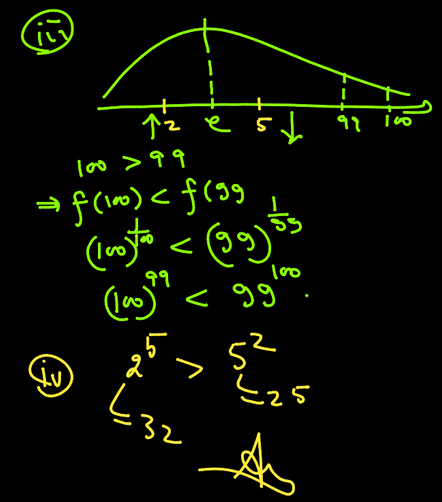 iii
↑ 2 e 5 ↓ 99 100
100 > 99
⇒ f(100) < f(99
(100)^{1/100} < (99)^{1/99}
(100)^{99} < 99^{100}.
iv 2^5 > 5^2
= 32 = 25